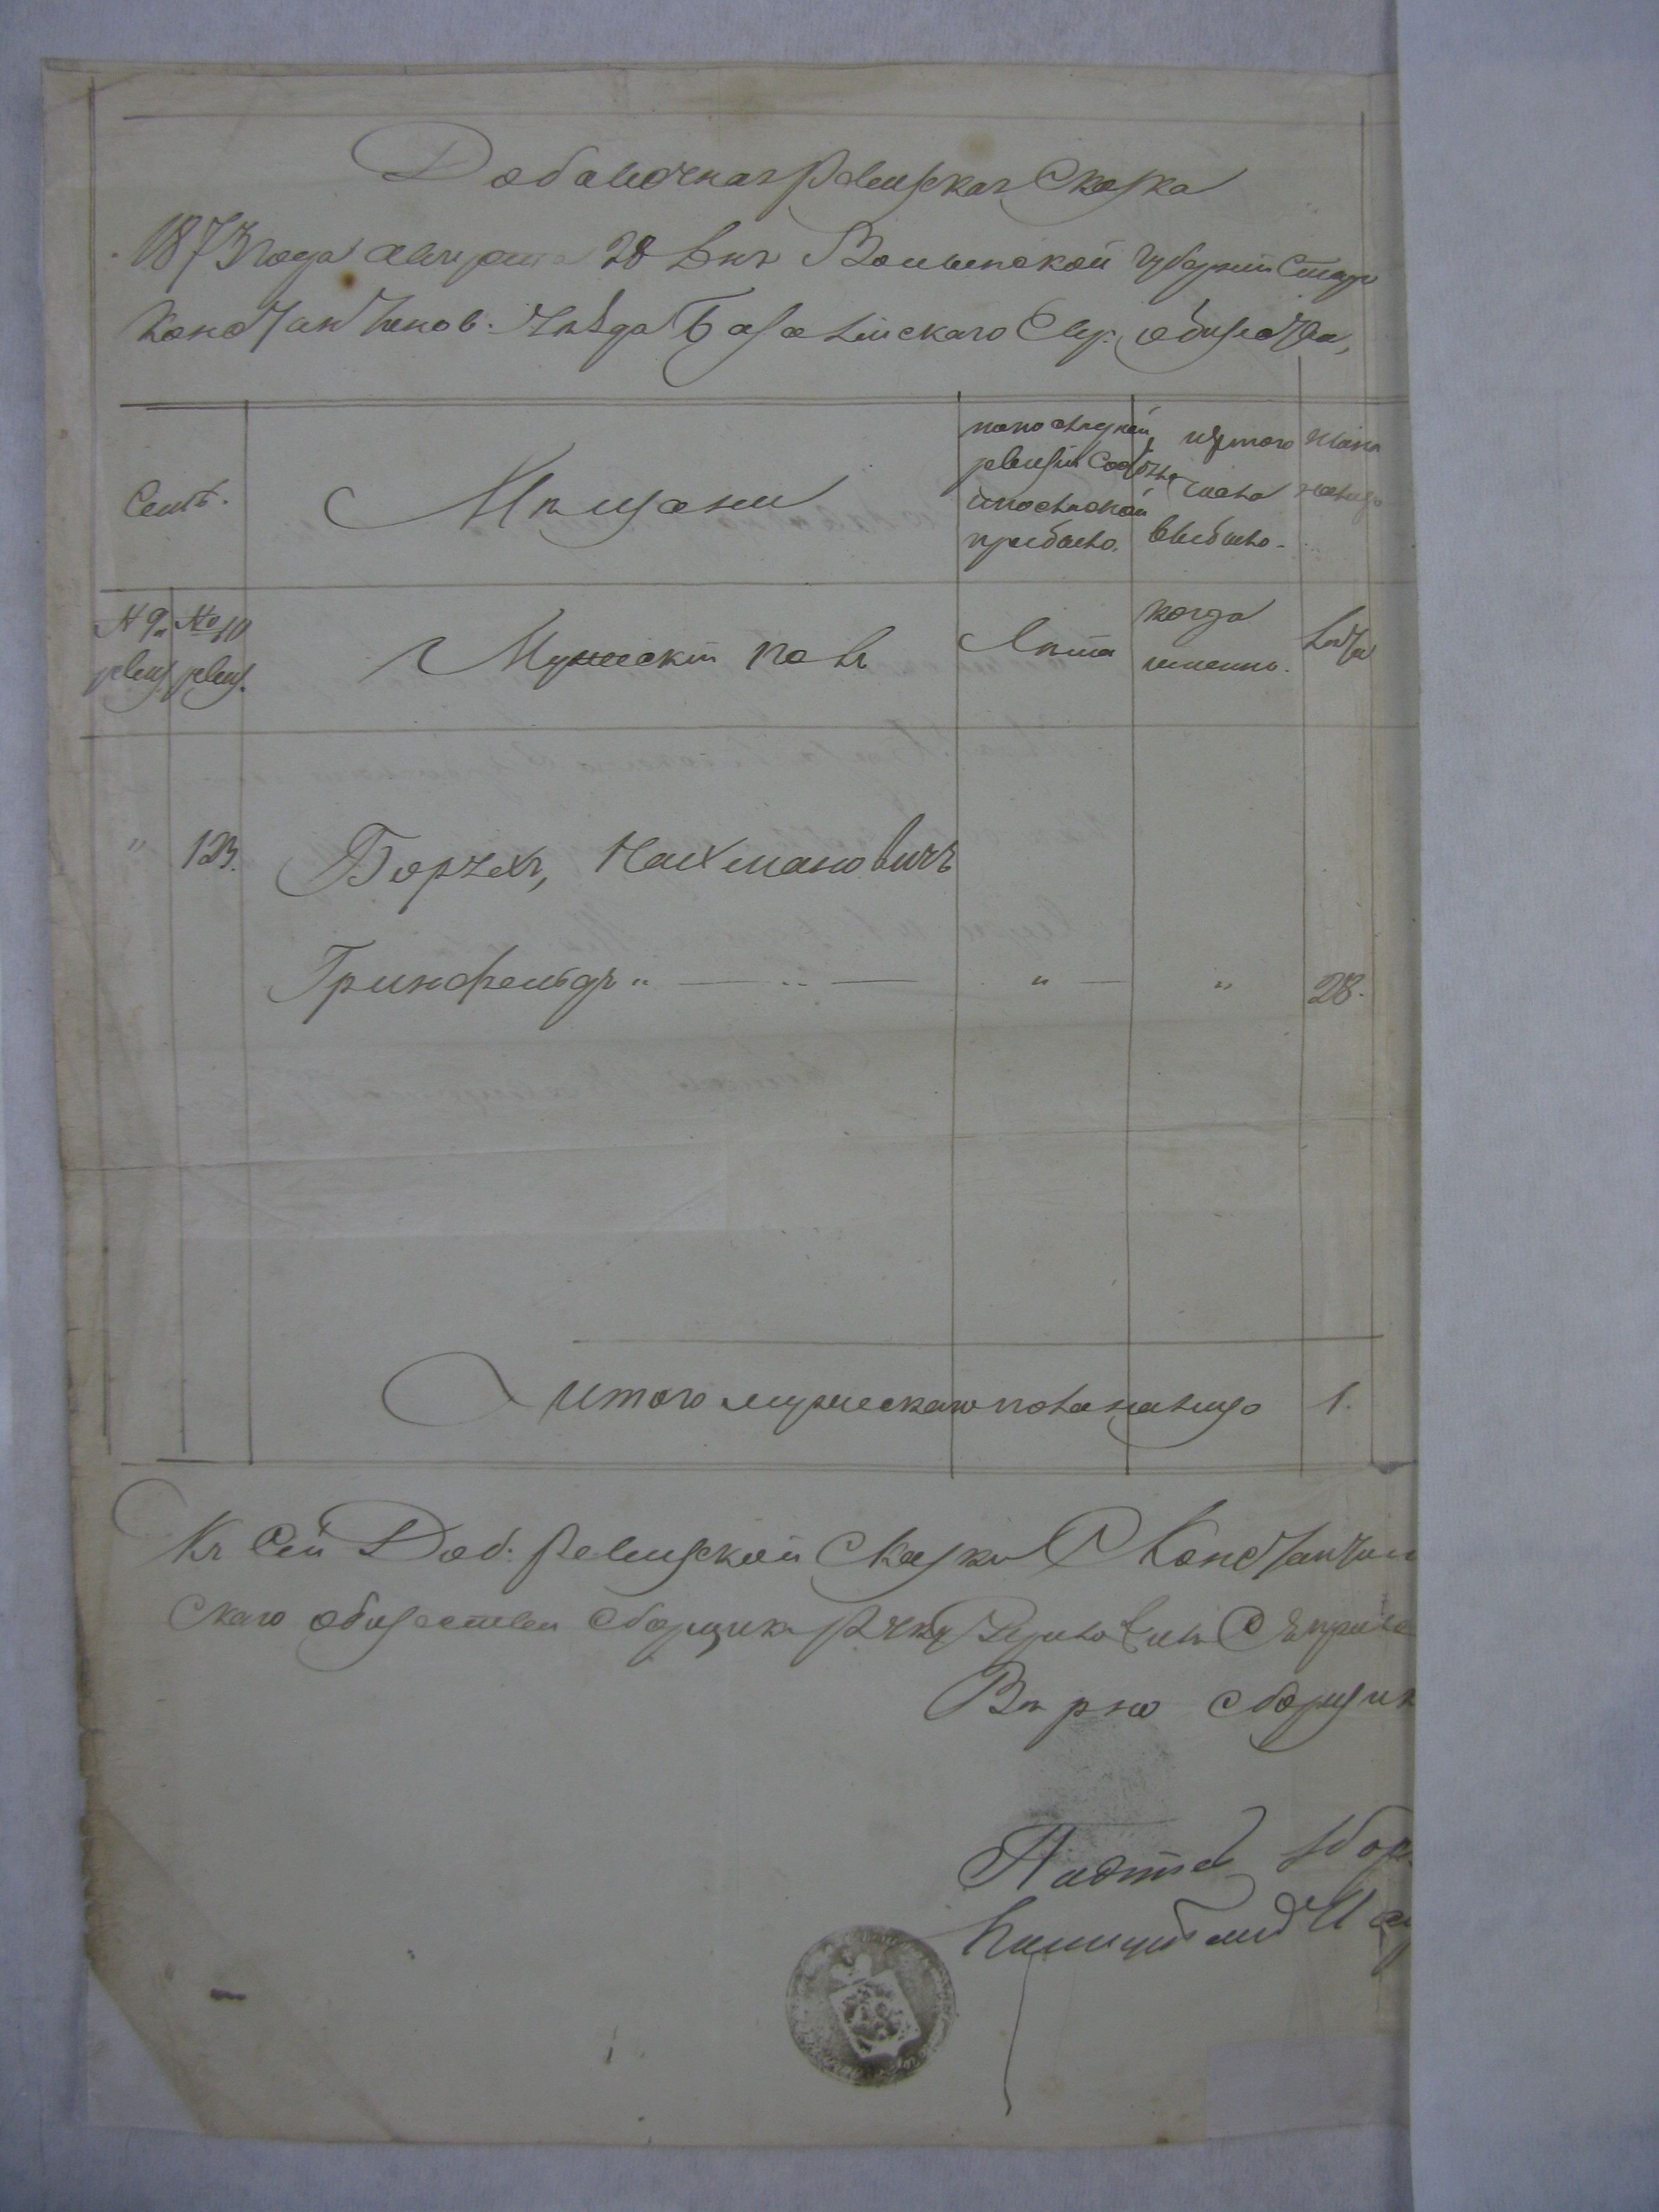 Добавочная Ревизская Сказка
1873 года Августа 28 дня Волынской Губернии Старо
Константинов. Уѣзда Базалійскаго Евр. общества,
Семъ.
Мѣщани
по последней
ревизіи состояло
и после оной
прибыло.
изъ того
числа
выбыло.
нынѣ
налицо
№ 9й ревиз.
№ 10 ревиз.
Мужескій полъ
Лѣта
когда
именно.
Лѣта
" 123. Борухъ, Нахмановичъ
Гринфельдъ " — " — " — " 28.
Итого мужескаго пола налицо 1.
Къ сей Доб. Ревизской Сказки С Константин
скаго обществен сборщикъ
Вѣрно сборщик